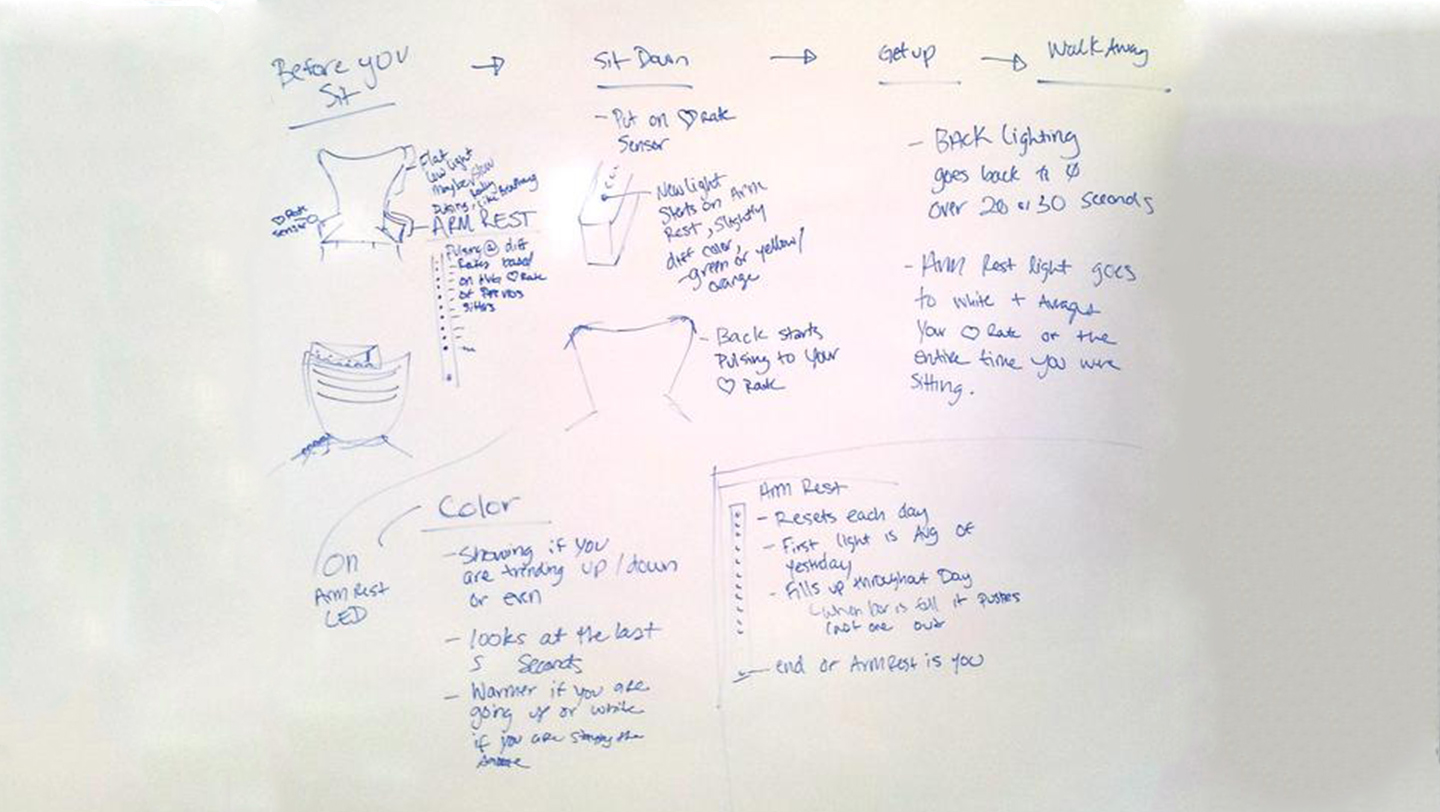 Before you
Sit
→
Sit Down
→
Get up
→
Walk Away
Flat
Low light
Maybe slow
Pulsing, like Breathing
♡ Rate
sensor
ARM REST
Pulsing @ diff
Rates based
on AVG ♡ Rate
of Previos
Sitters
- Put on ♡ Rate
Sensor
New light
Starts on Arm
Rest, Slightly
diff color,
- green or yellow/
orange
- Back starts
Pulsing to your
♡ Rate
- BACK lighting
goes back to
over 20 or 30 seconds
- Arm Rest light goes
to white + Averages
Your ♡ Rate or the
entire time you were
sitting.
On
Arm Rest
LED
Color
- Showing if you
are trending up/down
or even
- looks at the last
5 Seconds
- Warmer if you are
going up or white
if you are staying the
Arm Rest
- Resets each day
- First light is Avg of
yestday
- Fills up throughout Day
when bar is full it pushes
last one over
end or Arm Rest is you